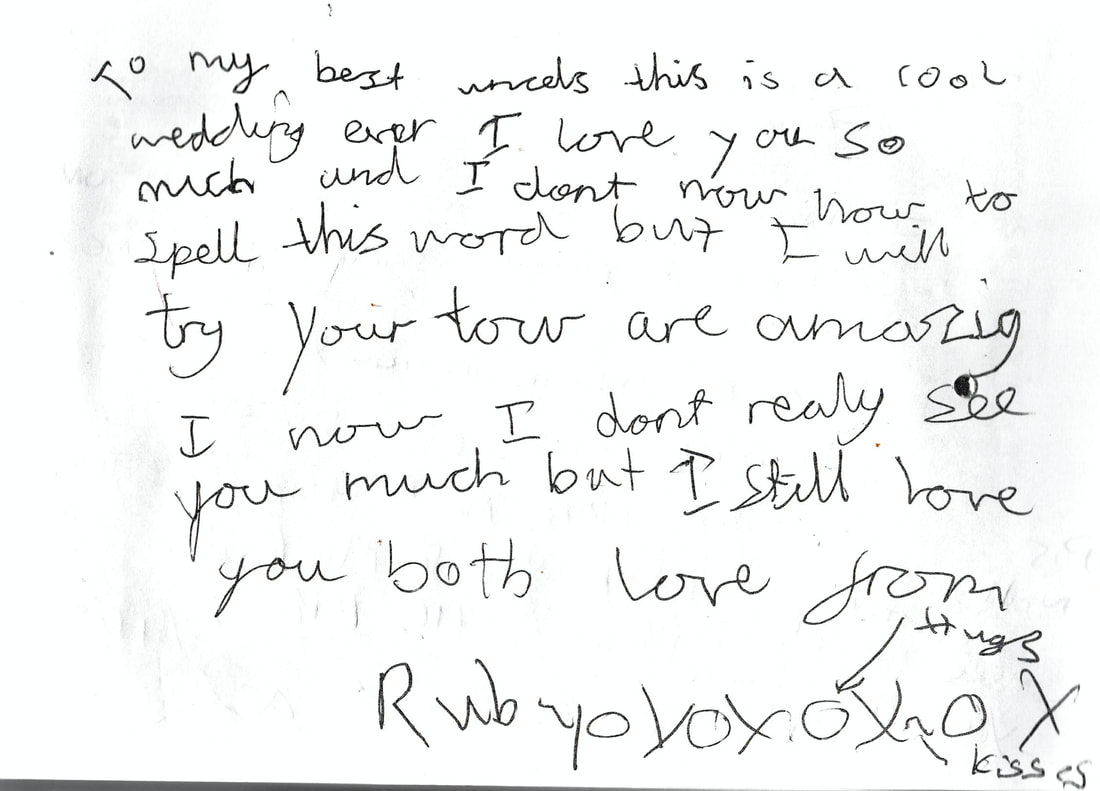 To my best uncels this is a cool
wedding ever I love you so
much and I dont now how to
spell this word but I will
try your tow are amazig
I now I dont realy see
you much but I still love
you both love from
Hugs
Ruby OXOXOXOX
kisses